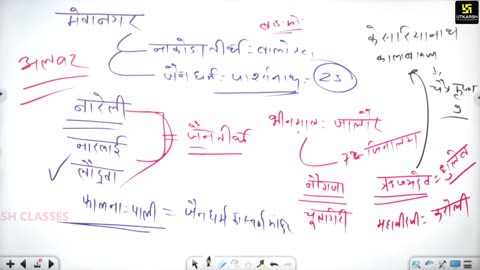 मेवानगर
नाकोडा तीर्थ = बालोतरा
जैन धर्म = पार्श्वनाथ = 23
अलवर
नारेली
नारलाई
लौद्रवा
= जैन तीर्थ
फालना = पाली = जैन धर्म का स्वर्ण मंदिर
भीनमाल = जालौर
72 जिनालय
नौगजा
ऋषभदेव = धुलेव
महावीरजी = करौली
केसरियानाथ
कालाबाबा
UTKARSH
SH CLASSES